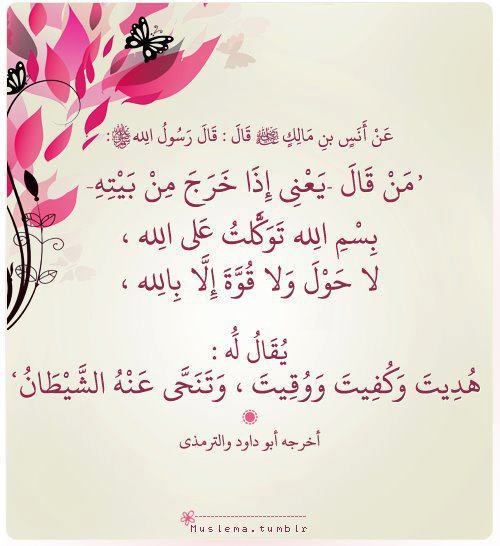 عَنْ أَنَسٍ بنِ مَالِكٍ ﷺ قَالَ : قَالَ رَسُولُ اللهﷺ:
’مَنْ قَالَ -يَعْنِى إِذَا خَرَجَ مِنْ بَيْتِهِ-
بِسْمِ اللهِ تَوَكَّلتُ عَلى اللهِ ،
لا حَوْلَ وَلا قُوَّةَ إِلَّا بِاللهِ ،
يُقَالُ لُه :
هُدِيتَ وَكُفِيتَ وَوُقِيتَ ، وَتَنَحَّى عَنْهُ الشَّيْطَانُ‘
أخرجه أبو داود والترمذى
Muslema.tumblr